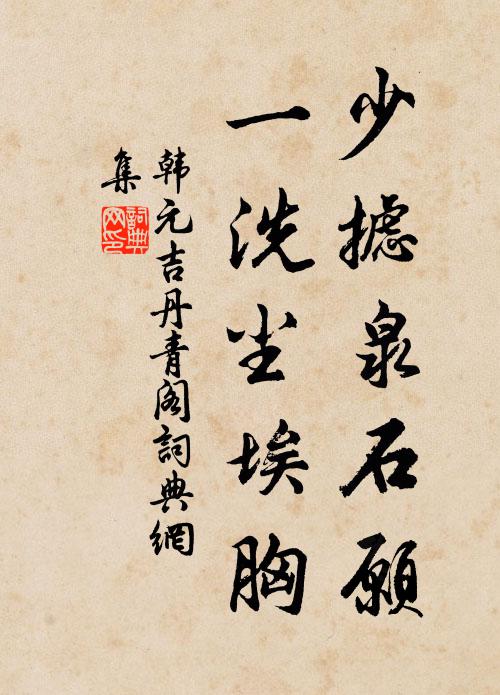 少摅泉石願
一洗尘埃胸
韩元吉丹青阁詞典網
集
詞典
网印